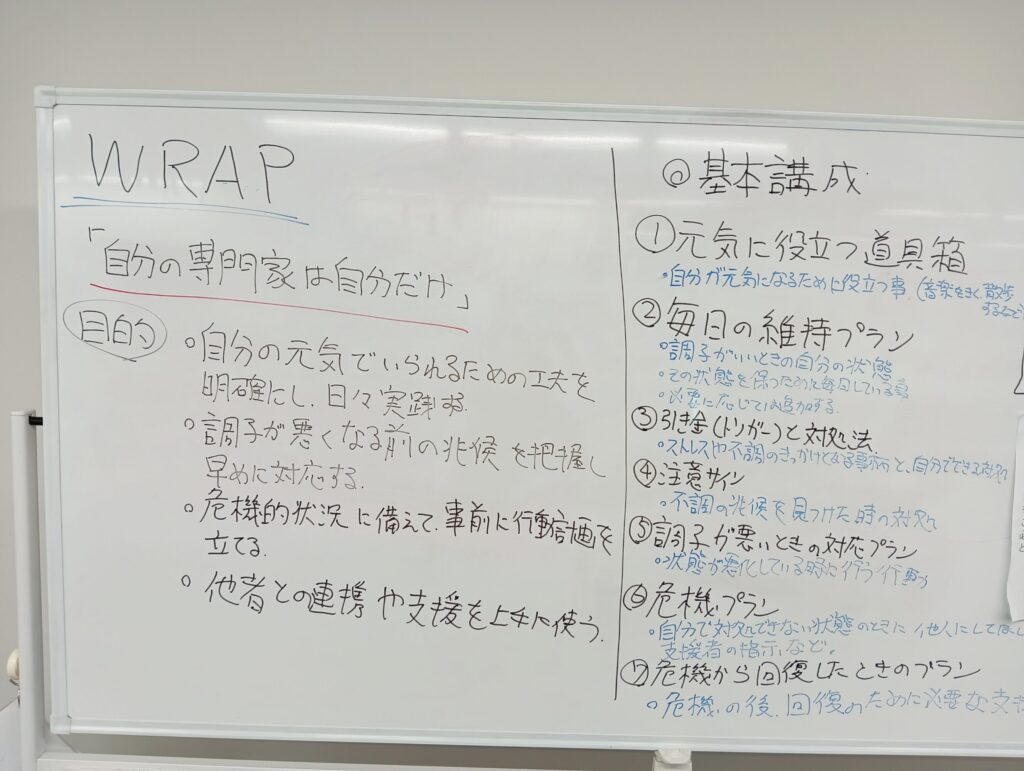 WRAP
「自分の専門家は自分だけ」
目的
○自分の元気でいられるための工夫を
明確にし、日々実践する。
○調子が悪くなる前の兆候を把握し
早めに対応する。
○危機的状況に備えて、事前に行動計画を
立てる。
○他者との連携や支援を上手に使う。
◎基本構成
①元気に役立つ道具箱
・自分が元気になるために役立つ事。(音楽をきく、散歩
するなど)
②毎日の維持プラン
・調子がいいときの自分の状態
・その状態を保つために毎日している事
・必要に応じては追加する。
③引き金(トリガー)と対処法
・ストレスや不調のきっかけとなる事柄と、自分でできる対処
④注意サイン
・不調の兆候を見つけた時の対処
⑤調子が悪いときの対応プラン
・状態が悪化している時に行う行動
⑥危機プラン
・自分で対処できない状態のときに他人にしてほし
支援者の指示、など。
⑦危機から回復したときのプラン
・危機の後、回復のために必要な支